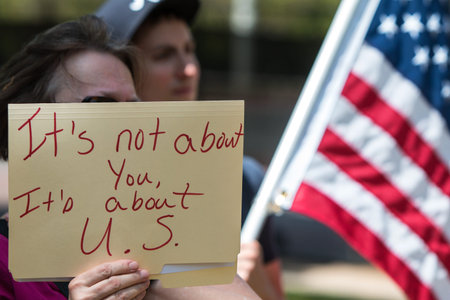 It's not about
You,
It's about
U.S.